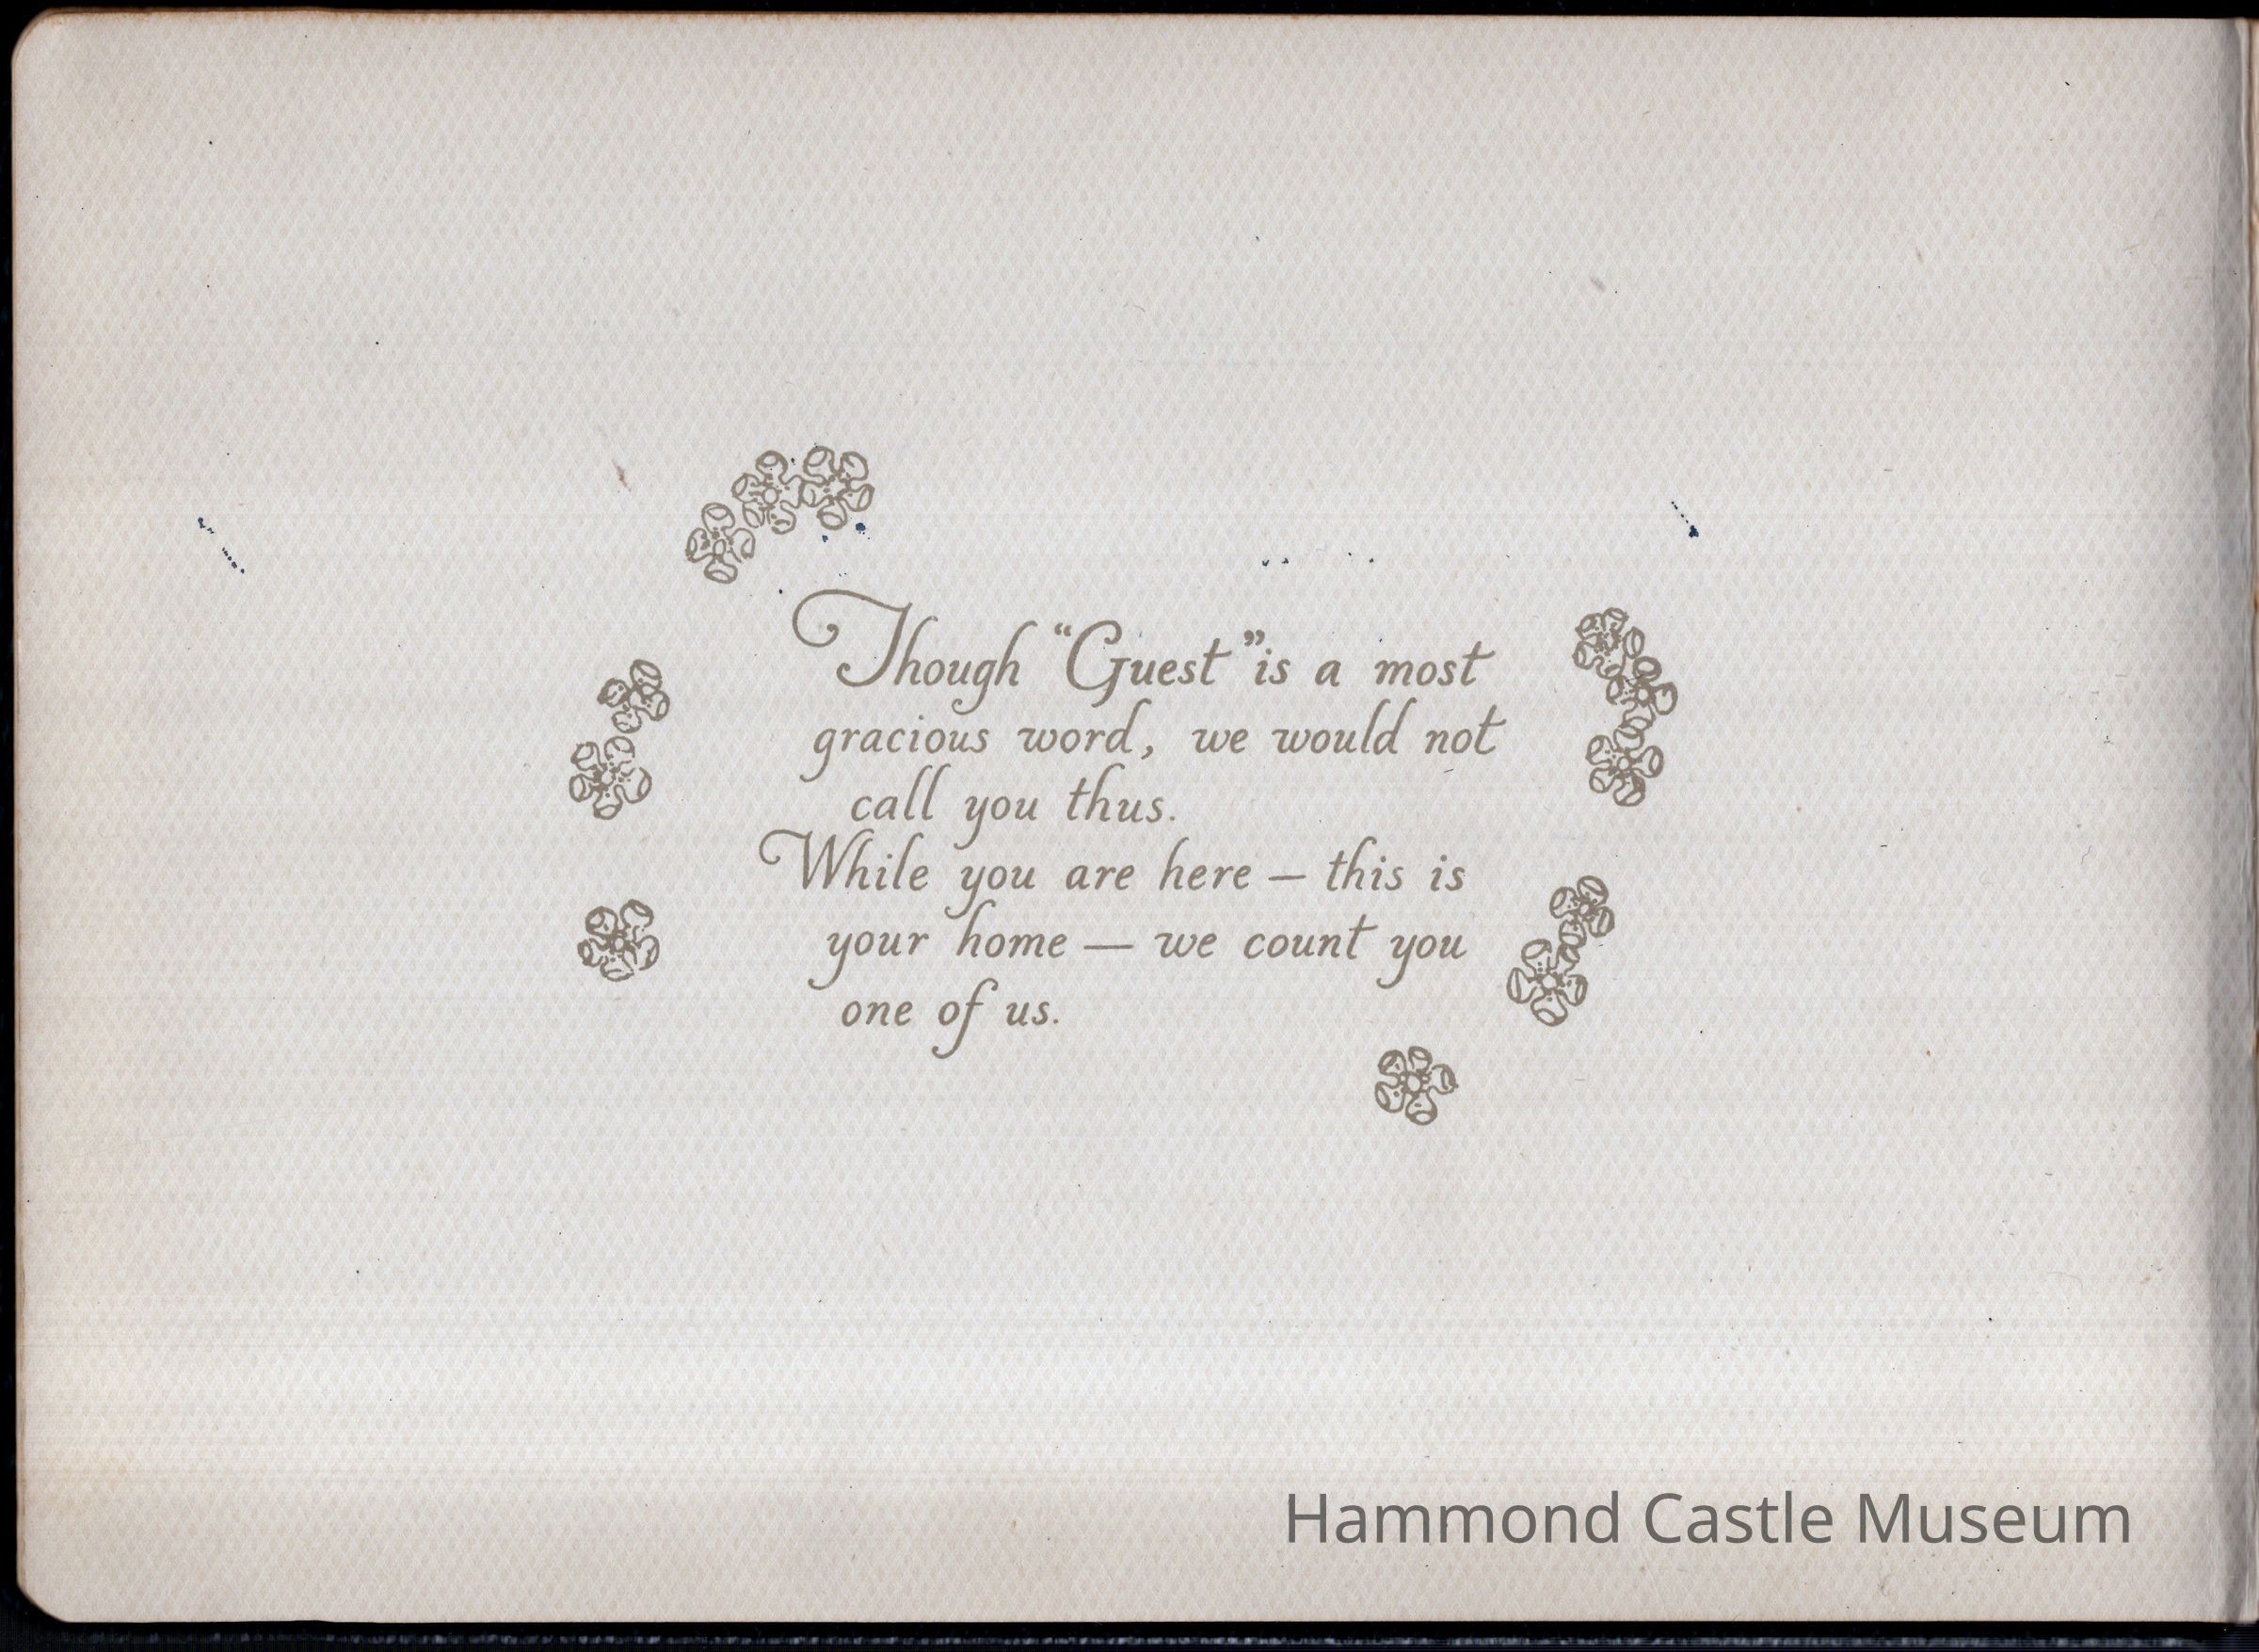 Though “Guest” is a most
gracious word, we would not
call you thus.
While you are here — this is
your home — we count you
one of us.
Hammond Castle Museum